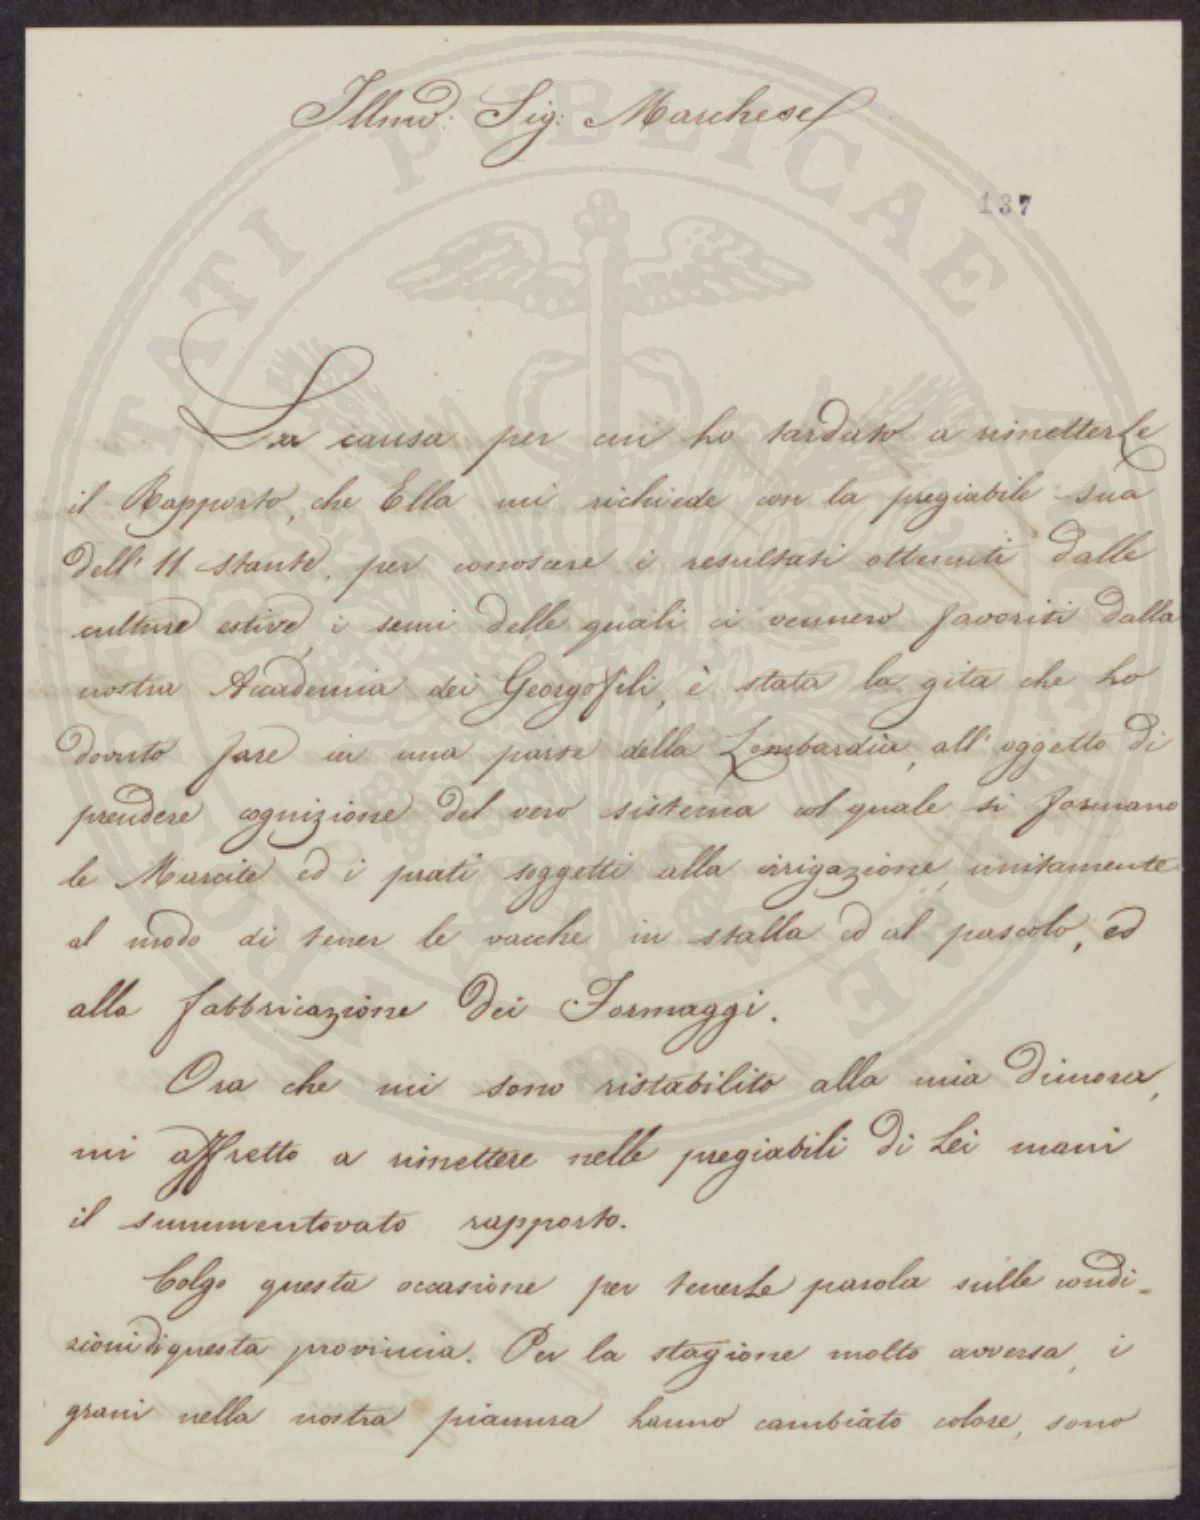 Illmo: Sig: Marchese
137
La causa per cui ho tardato a rimetterLe
il Rapporto, che Ella mi richiede con la pregiabile sua
dell' 11 stante, per conoscere i resultati ottenuti dalle
culture estive, i semi delle quali ci vennero favoriti dalla
nostra Accademia dei Georgofili, è stata la gita che ho
dovuto fare in una parte della Lombardia, all' oggetto di
prendere cognizione del vero sistema col quale si formano
le Marcite ed i prati soggetti alla irrigazione, unitamente
al modo di tener le vacche in stalla ed al pascolo, ed
alla fabbricazione dei Formaggi.
Ora che mi sono ristabilito alla mia dimora,
mi affretto a rimettere nelle pregiabili di Lei mani
il summentovato rapporto.
Colgo questa occasione per tenerLe parola sulle condi-
zioni di questa provincia. Per la stagione molto avversa, i
grani nella nostra pianura hanno cambiato colore, sono